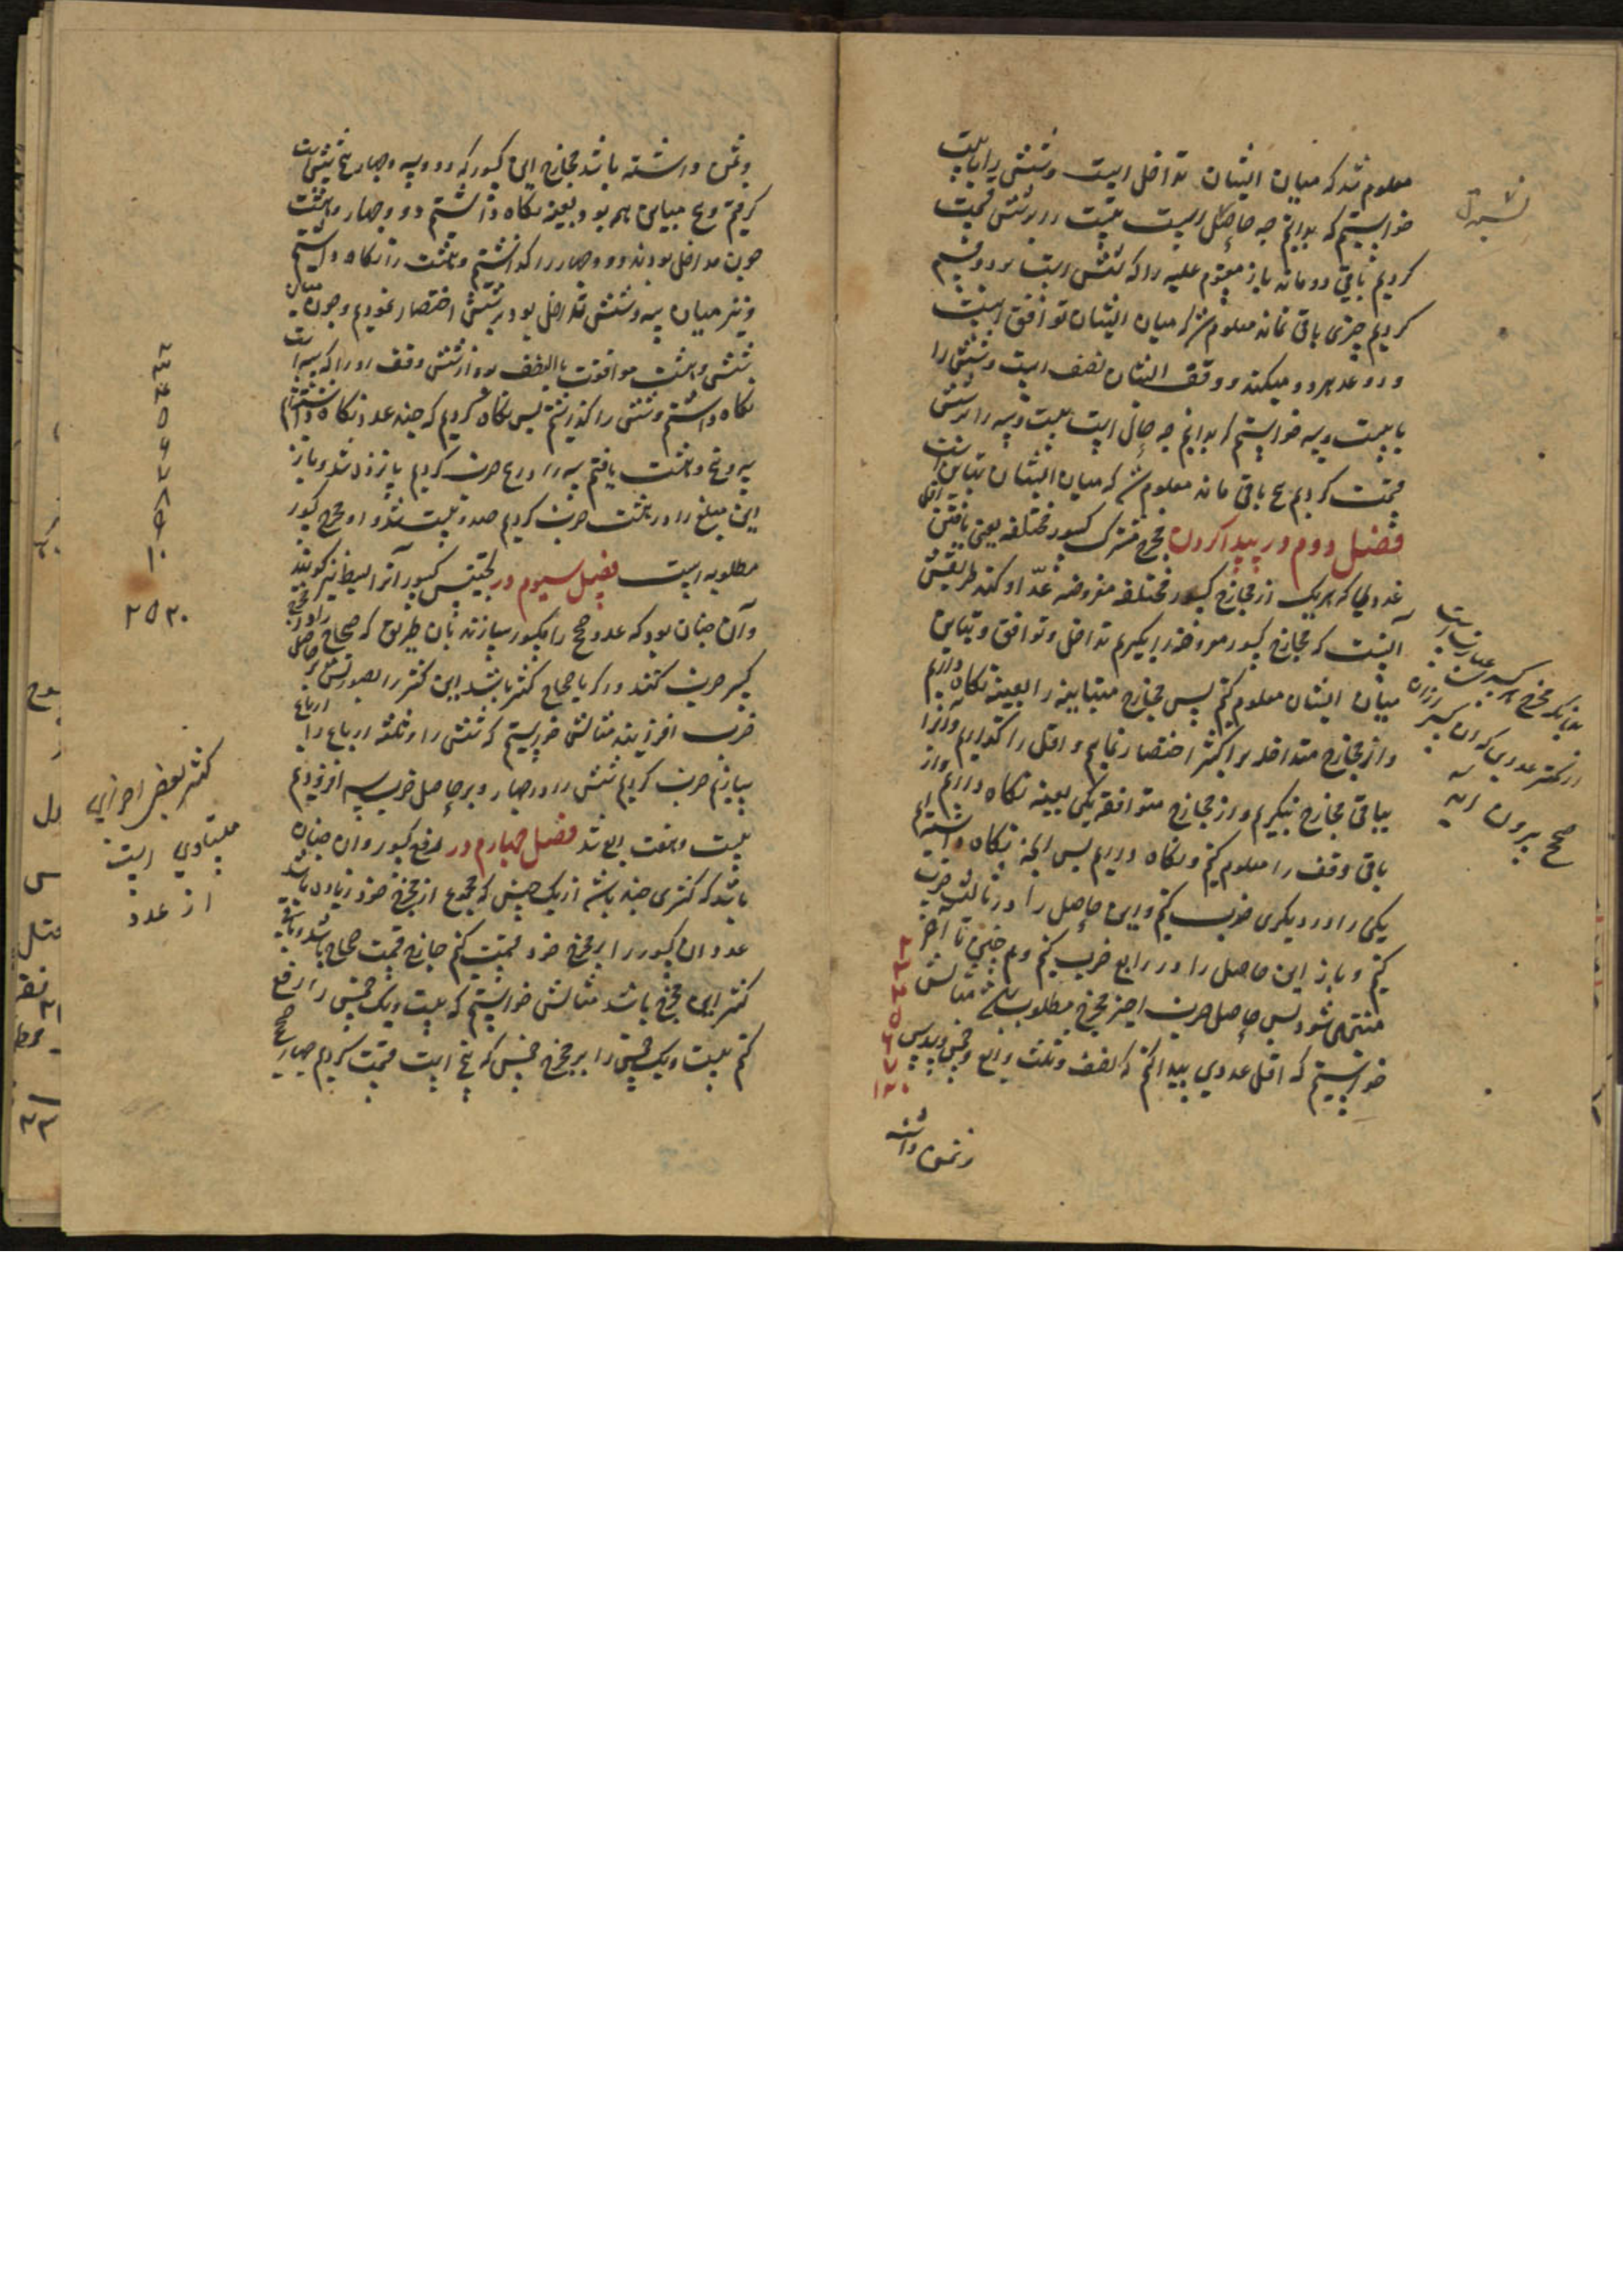 معلوم شد که میان ایشان تداخل است و شش را با بیست
خواستیم که بدانیم چه حاصل است بیست را بر شش قسمت
کردیم باقی دو ماند باز مقسوم علیه را که شش است بر دو قسمت
کردیم چیزی باقی نماند معلوم شد که میان ایشان توافق است
و دو عد هر دو میکند و وفق ایشان نصف است و شش را
با بیست و پنج خواستیم که بدانیم چه حال است بیست و پنج را بر شش
قسمت کردیم یک باقی ماند معلوم شد که میان ایشان تباین است
فصل دوم در پیدا کردن مخرج مشترک کسور مختلفه یعنی یافتن اقل
عددی که هر یک از مخارج کسور مختلفه مفروضه عدّ او کند طریقش
آنست که مخارج کسور مفروضه را بگیریم تداخل و توافق و تباین
میان ایشان معلوم کنیم پس مخارج متباینه را بعینه نگاه داریم
و از مخارج متداخله بر اکثر اختصار نمایم و اقل را بگذاریم و از
باقی مخارج بگیریم و از مخارج متوافقه یکی بعینه نگاه داریم و از
باقی وفق را معلوم کنیم و نگاه داریم پس آنچه نگاه داشته ایم
یکی را در دیگری ضرب کنیم و این حاصل را در ثالث ضرب
کنیم و باز این حاصل را در رابع ضرب کنیم و همچنین تا آخر
منتهی شود پس حاصل ضرب اخیر مخرج مطلوب باشد مثالش
خواستیم که اقل عددی پیدا کنیم که نصف و ثلث و ربع و خمس و سدس
و ثمن داشته
۲
۳
۴
۵
۶
۸
۱۲۰
بدانکه مخرج هر کسر عبارتست
از کمتر عددی که آن کسر از آن
صحیح بیرون آید
و ثمن داشته باشد مخارج این کسور که دو و سه و چهار و پنج و شش و هشت است
گرفتیم و پنج مباین همه بود بعینه نگاه داشتیم دو و چهار و هشت
چون متداخل بودند دو و چهار را گذاشتیم و هشت را نگاه داشتیم
و نیز میان سه و شش تداخل بود بر شش اختصار نمودیم و چون میان
شش و هشت موافقت بالنصف بود از شش وفق او را که سه است
نگاه داشتیم و شش را گذاشتیم پس نگاه کردیم که چند عدد نگاه داشته ایم
سه و پنج و هشت یافتیم سه را در پنج ضرب کردیم پانزده شد و باز
این مبلغ را در هشت ضرب کردیم صد و بیست شد و او مخرج کسور
مطلوبه است فصل سیوم در تجنیس کسور آنرا بسط نیز گویند
و آن چنان بود که عدد صحیح را کسور سازند بآن طریق که صحاح را در مخرج
کسر ضرب کنند و اگر با صحاح کسر باشد این کسر را بصورتش بر حاصل
ضرب افزایند مثالش خواستیم که شش را و ثلثه ارباع را ارباع
سازیم ضرب کردیم شش را در چهار و بر حاصل ضرب سه افزودیم
بیست و هفت ربع شد فصل چهارم در رفع کسور و آن چنان
باشد که کسری چند باشد از یک جنس که مجموع از مخرج خود زیاده باشد
عدد آن کسور را بر مخرج خود قسمت کنیم خارج قسمت صحاح باشد و باقی
کسر این مخرج باشد مثالش خواستیم که بیست و یک خمس را رفع
کنیم بیست و یک خمس را بر مخرج خمس که پنج است قسمت کردیم چهار صحیح
۲
۳
۴
۵
۶
۷
۸
۹
۱۰
۲۵۲۰
کسر بعض اجزای
متساوی است
از عدد